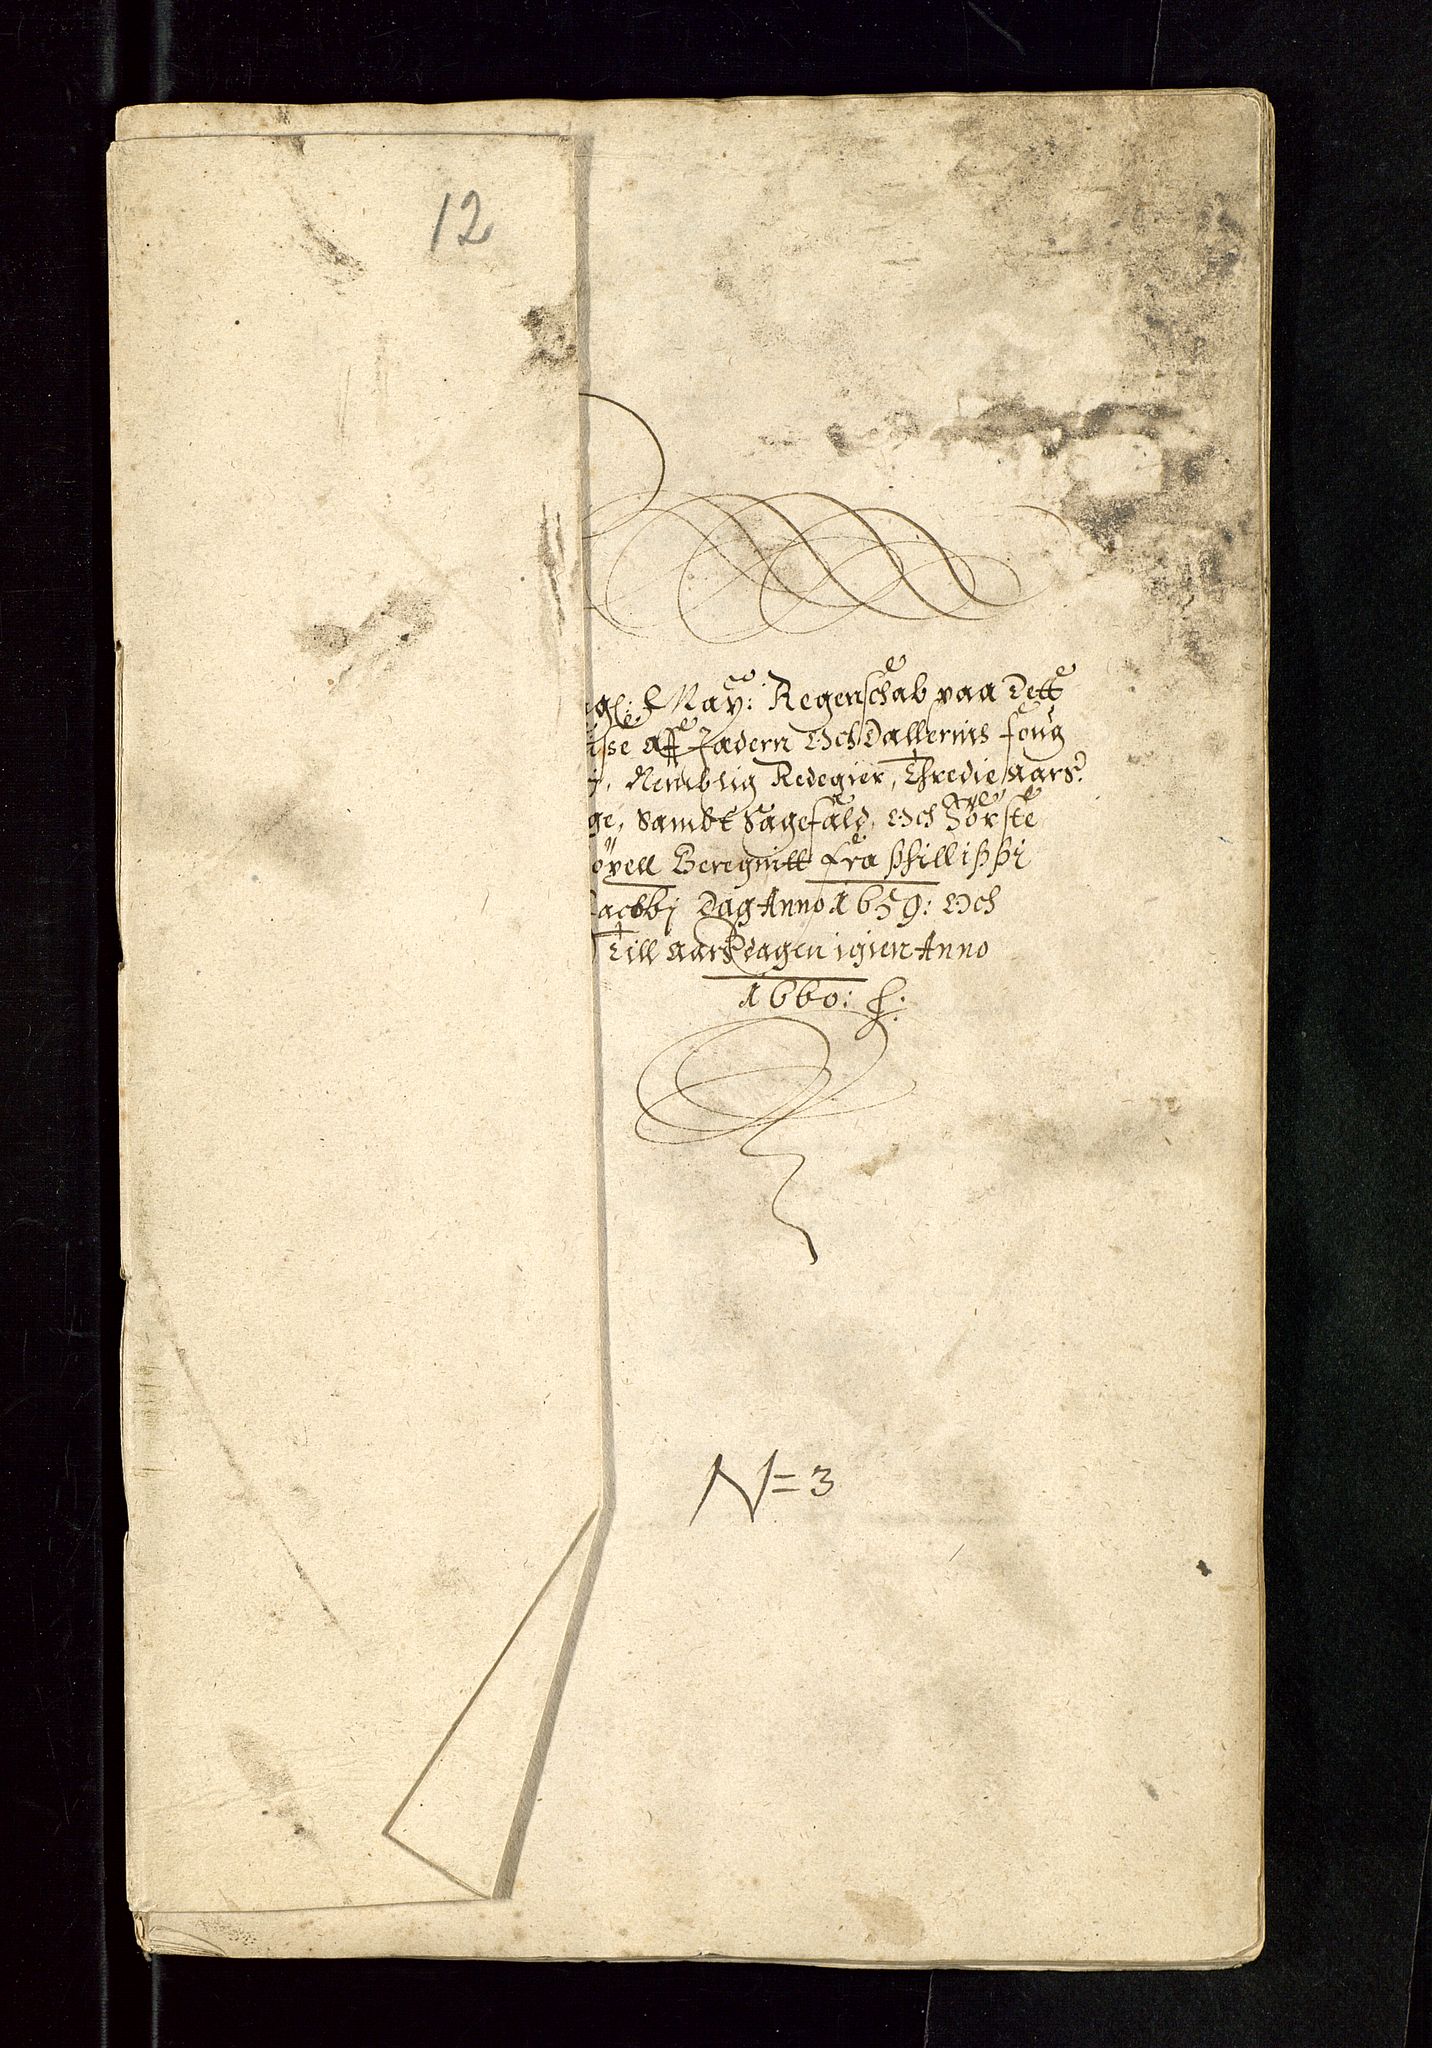 12
gl: May: Regenschab paa Dett
isse aff Jadern Och Dallernis foug
j, Nemblig Redegier, Thredie aars
ge, Sambt Sagefald, Och Förste
öxell Beregnitt fra Phillippi
Jacobbj Dag Anno 1659: Och
Till aarsdagen igien Anno
1660:
N=3